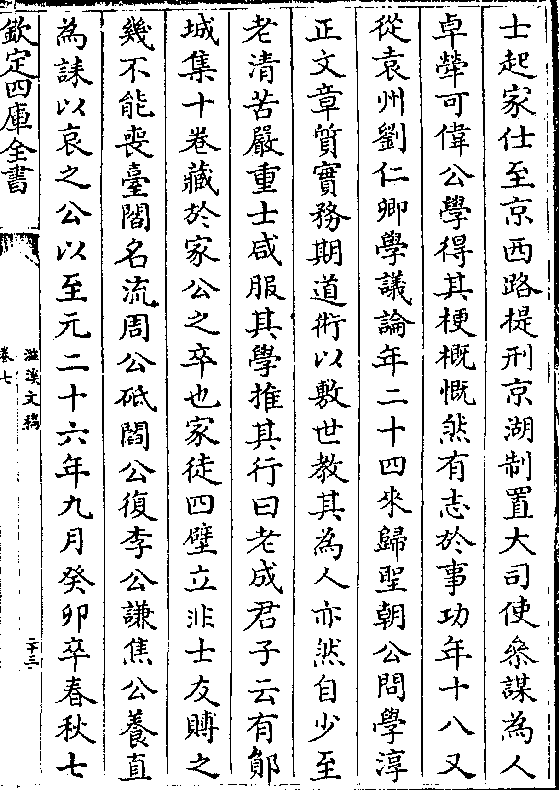 士起家仕至京西路提刑京湖制置大司使叅謀為人
卓犖可偉公學得其梗概慨然有志於事功年十八又
從袁州劉仁卿學議論年二十四來歸聖朝公問學淳
正文章質實務期道術以敷世教其為人亦然自少至
老清苦嚴重士咸服其學推其行曰老成君子云有郧
城集十卷藏於家公之卒也家徒四壁立非士友賻之
幾不能喪臺閣名流周公砥閻公復李公謙焦公養直
為誄以哀之公以至元二十六年九月癸卯卒春秋七
欽定四庫全書
滋溪文稿
卷七
二十三